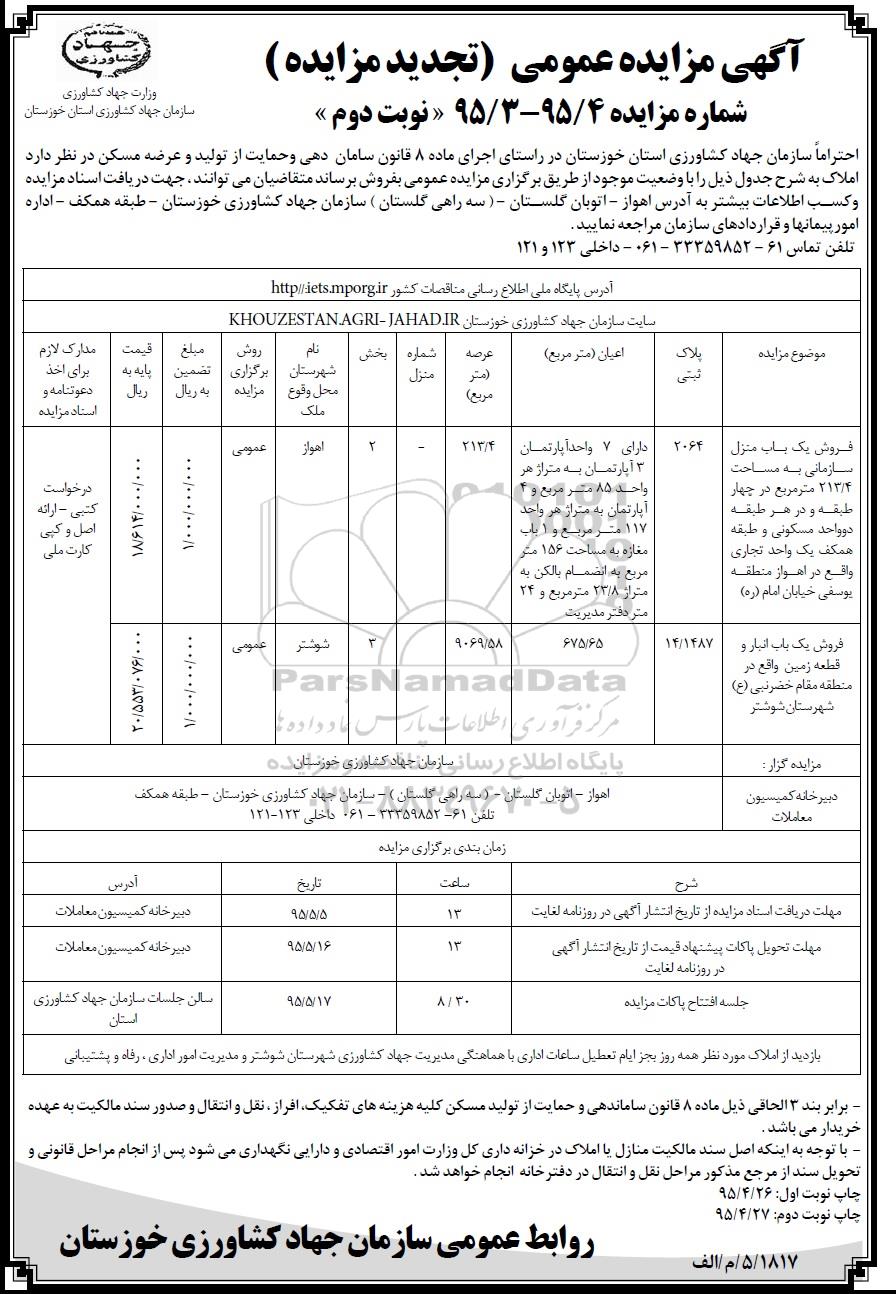 آگهی مزایده عمومی (تجدید مزایده)
شماره مزایده ۹۵/۴-۹۵/۳ «نوبت دوم»
جهاد کشاورزی
وزارت جهاد کشاورزی
سازمان جهاد کشاورزی استان خوزستان
احتراماً سازمان جهاد کشاورزی استان خوزستان در راستای اجرای ماده ۸ قانون سامان دهی وحمایت از تولید و عرضه مسکن در نظر دارد
املاک به شرح جدول ذیل را با وضعیت موجود از طریق برگزاری مزایده عمومی بفروش برساند متقاضیان می توانند، جهت دریافت اسناد مزایده
وکسب اطلاعات بیشتر به آدرس اهواز - اتوبان گلستان - ( سه راهی گلستان ) سازمان جهاد کشاورزی خوزستان - طبقه همکف - اداره
امور پیمانها و قراردادهای سازمان مراجعه نمایید.
تلفن تماس ۶۱ - ۳۳۳۵۹۸۵۲ - ۰۶۱ - داخلی ۱۲۳ و ۱۲۱
آدرس پایگاه ملی اطلاع رسانی مناقصات کشور http//:iets.mporg.ir
سایت سازمان جهاد کشاورزی خوزستان KHOUZESTAN.AGRI- JAHAD.IR
موضوع مزایده
پلاک
ثبتی
اعیان (متر مربع)
عرصه
(متر
مربع)
شماره
منزل
بخش
نام
شهرستان
محل وقوع
ملک
روش
برگزاری
مزایده
مبلغ
تضمین
به ریال
قیمت
پایه به
ریال
مدارک لازم
برای اخذ
دعوتنامه و
اسناد مزایده
فروش یک باب منزل
سازمانی به مساحت
۲۱۳/۴ مترمربع در چهار
طبقه و در هر طبقه
دوواحد مسکونی و طبقه
همکف یک واحد تجاری
واقع در اهواز منطقه
یوسفی خیابان امام (ره)
۲۰۶۴
دارای ۷ واحدآپارتمان
۳ آپارتمان به متراژ هر
واحد ۸۵ متر مربع و ۴
آپارتمان به متراژ هر واحد
۱۱۷ متر مربع و ۱ باب
مغازه به مساحت ۱۵۶ متر
مربع به انضمام بالکن به
متراژ ۲۳/۸ مترمربع و ۲۴
متر دفتر مدیریت
۲۱۳/۴
-
۲
اهواز
عمومی
۱/۰۰۰/۰۰۰/۰۰۰
۱۸/۶۱۴/۰۰۰/۰۰۰
درخواست
کتبی - ارائه
اصل و کپی
کارت ملی
فروش یک باب انبار و
قطعه زمین واقع در
منطقه مقام خضرنبی (ع)
شهرستان شوشتر
۱۴/۱۴۸۷
۶۷۵/۶۵
۹۰۶۹/۵۸
۳
شوشتر
عمومی
۱/۰۰۰/۰۰۰/۰۰۰
۲۰/۵۵۳/۰۷۶/۰۰۰
ParsNamadData
مرکز فرآوری اطلاعات پارس نماد داده ها
پایگاه اطلاع رسانی مناقصه و مزایده
۰۲۱-۸۸۳۴۹۶۷۰-۵
مزایده گزار :
سازمان جهاد کشاورزی خوزستان
دبیرخانه کمیسیون
معاملات
اهواز - اتوبان گلستان - ( سه راهی گلستان ) - سازمان جهاد کشاورزی خوزستان - طبقه همکف
تلفن ۶۱- ۳۳۳۵۹۸۵۲ - ۰۶۱ داخلی ۱۲۳-۱۲۱
زمان بندی برگزاری مزایده
شرح
ساعت
تاریخ
آدرس
مهلت دریافت اسناد مزایده از تاریخ انتشار آگهی در روزنامه لغایت
۱۳
۹۵/۵/۵
دبیرخانه کمیسیون معاملات
مهلت تحویل پاکات پیشنهاد قیمت از تاریخ انتشار آگهی
در روزنامه لغایت
۱۳
۹۵/۵/۱۶
دبیرخانه کمیسیون معاملات
جلسه افتتاح پاکات مزایده
۸ / ۳۰
۹۵/۵/۱۷
سالن جلسات سازمان جهاد کشاورزی
استان
بازدید از املاک مورد نظر همه روز بجز ایام تعطیل ساعات اداری با هماهنگی مدیریت جهاد کشاورزی شهرستان شوشتر و مدیریت امور اداری ، رفاه و پشتیبانی
- برابر بند ۳ الحاقی ذیل ماده ۸ قانون ساماندهی و حمایت از تولید مسکن کلیه هزینه های تفکیک، افراز ، نقل و انتقال و صدور سند مالکیت به عهده
خریدار می باشد .
- با توجه به اینکه اصل سند مالکیت منازل یا املاک در خزانه داری کل وزارت امور اقتصادی و دارایی نگهداری می شود پس از انجام مراحل قانونی و
تحویل سند از مرجع مذکور مراحل نقل و انتقال در دفترخانه انجام خواهد شد .
چاپ نوبت اول: ۹۵/۴/۲۶
چاپ نوبت دوم: ۹۵/۴/۲۷
روابط عمومی سازمان جهاد کشاورزی خوزستان
۵/۱۸۱۷/م/الف